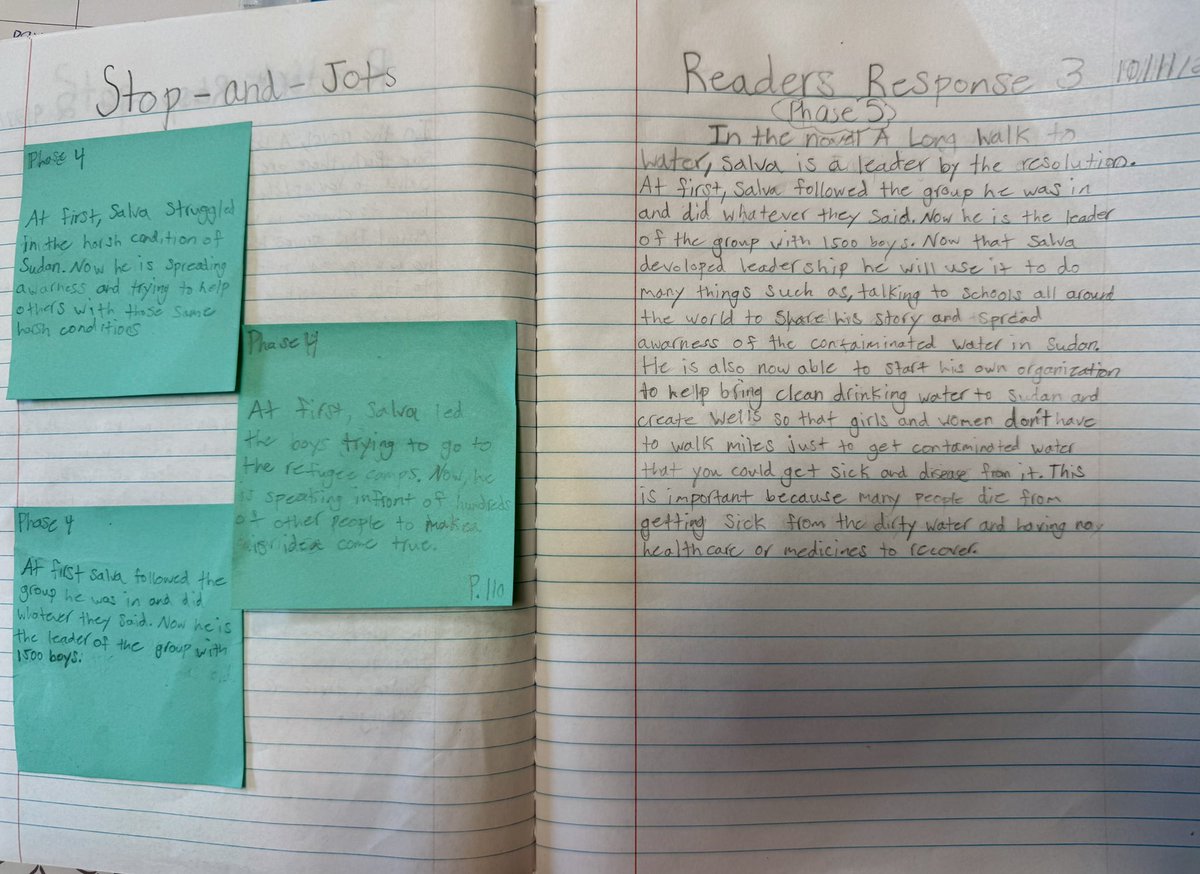 Stop-and-Jots
Phase 4
At first, Salva Struggled
in the harsh condition of
Sudan. Now he is spreading
awarness and trying to help
others with those same
harsh conditions
Phase 4
At first, Salva led
the boys trying to go to
the refugee camps. Now, he
is speaking infront of hundreds
of other people to make a
idea come true.
P. 110
Phase 4
At first Salva followed the
group he was in and did
whatever they said. Now he is
the leader of the group with
1500 boys.
Readers Response 3 10/11/
(Phase 5)
In the novel A Long Walk to
Water, Salva is a leader by the resolution.
At first, Salva followed the group he was in
and did whatever they said. Now he is the leader
of the group with 1500 boys. Now that Salva
devoloped leadership he will use it to do
many things such as, talking to schools all around
the world to share his story and spread
awarness of the contaiminated water in Sudan.
He is also now able to start his own organization
to help bring clean drinking water to Sudan and
create wells so that girls and women don't have
to walk miles just to get contaminated water
that you could get sick and disease from it. This
is important because many people die from
getting sick from the dirty water and having no
healthcare or medicines to recover.